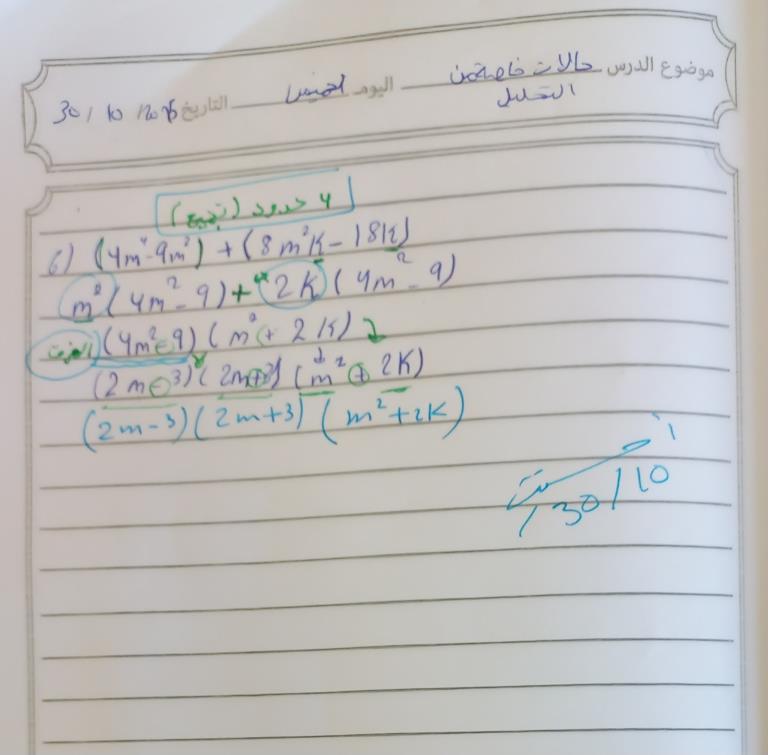 موضوع الدرس حالات خاصة من التحليل اليوم الخميس التاريخ 30 / 10 / 2025
4 حدود (تجميع)
6) (4m⁴-9m²) + (8m²K - 18K)
m² (4m² - 9) + 2K (4m² - 9)
(4m² - 9) (m² + 2K)
(2m - 3) (2m + 3) (m² + 2K)
(2m-3) (2m+3) (m²+2K)
أحسنت
30/10